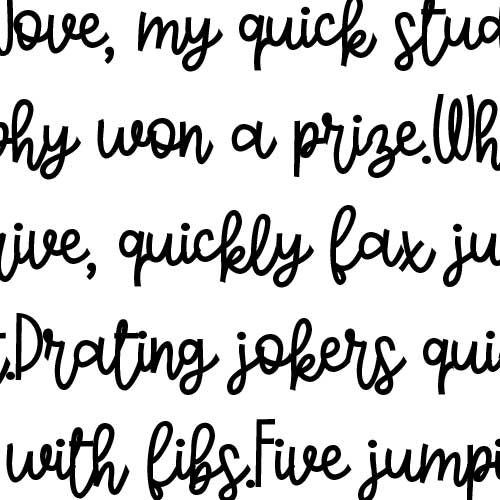 love, my quick stud
phy won a prize.Wh
rive, quickly fax ju
t.Drating jokers qui
with fibs.Five jumpi